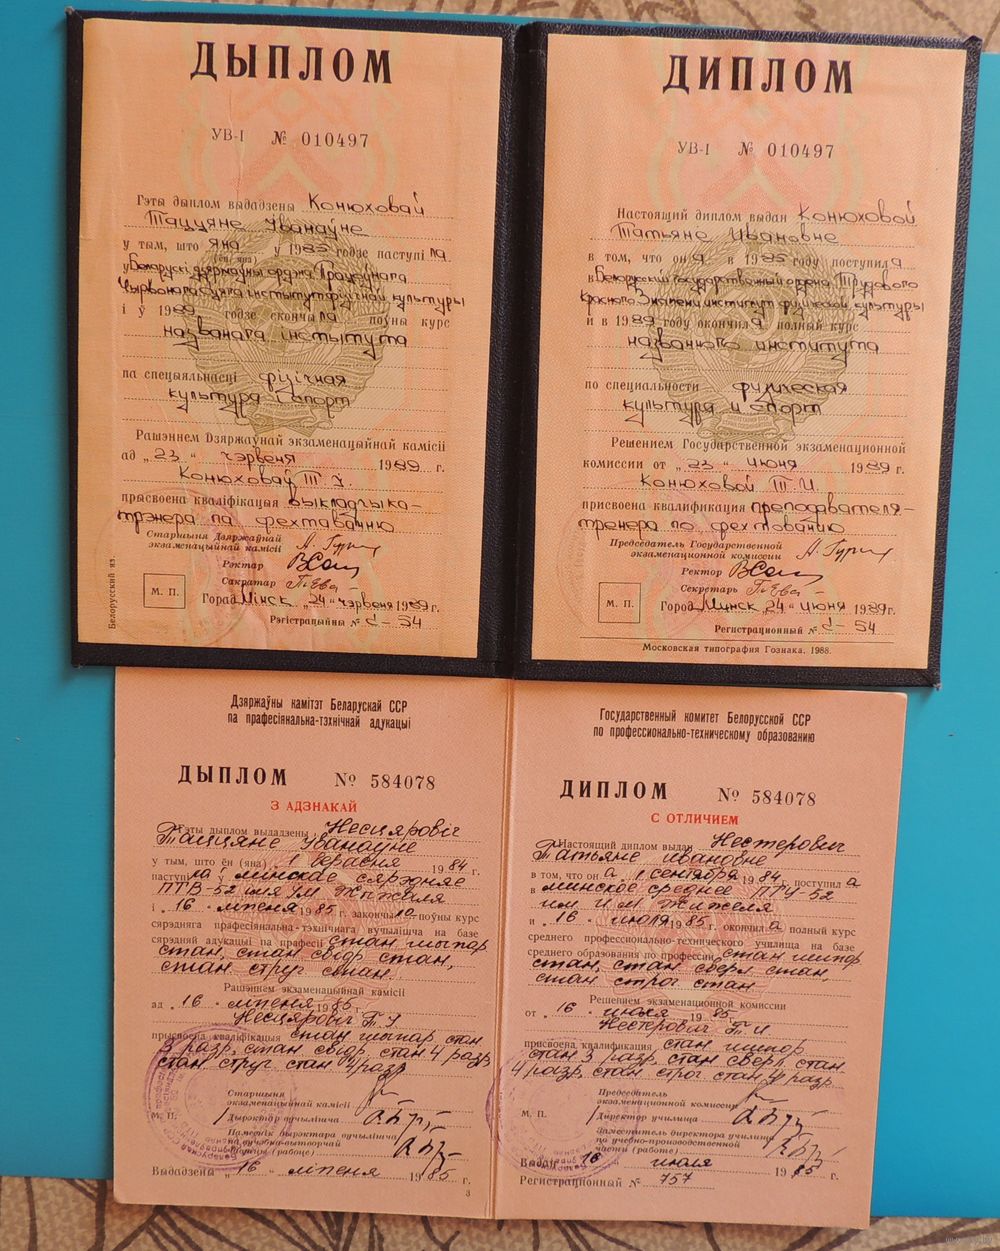 ДЫПЛОМ
УВ-I № 010497
Гэты дыплом выдадзены Конюховай
Таццяне Іванаўне
у тым, што яна у 1985 годзе паступіла
у Беларускі дзяржаўны ордэна Працоўнага
Чырвонага Сцяга інстытут фізічнай культуры
і ў 1989 годзе скончыла поўны курс
названага інстытута
па спецыяльнасці фізічная
культура і спорт
Рашэннем Дзяржаўнай экзаменацыйнай камісіі
ад „23“ чэрвеня 1989 г.
Конюховай Т. І.
прысвоена кваліфікацыя выкладчыка-
трэнера па фехтаванню
Старшыня Дзяржаўнай
экзаменацыйнай камісіі
Рэктар
Сакратар
М. П.
Горад Мінск „24“ чэрвеня 1989 г.
Рэгістрацыйны № С-54
Белорусский яз.
ДИПЛОМ
УВ-I № 010497
Настоящий диплом выдан Конюховой
Татьяне Ивановне
в том, что она в 1985 году поступила
в Белорусский государственный ордена Трудового
Красного Знамени институт физической культуры
и в 1989 году окончила полный курс
названного института
по специальности физическая
культура и спорт
Решением Государственной экзаменационной
комиссии от „23“ июня 1989 г.
Конюховой Т. И.
присвоена квалификация преподавателя-
тренера по фехтованию
Председатель Государственной
экзаменационной комиссии
Ректор
Секретарь
М. П.
Город Минск „24“ июня 1989 г.
Регистрационный № С-54
Московская типография Гознака. 1988.
Дзяржаўны камітэт Беларускай ССР
па прафесіянальна-тэхнічнай адукацыі
ДЫПЛОМ № 584078
З АДЗНАКАЙ
Гэты дыплом выдадзены Несцяровіч
Таццяне Іванаўне
у тым, што ён (яна) 1 верасня 1984 г.
паступіла ў мінскае сярэдняе
ПТВ-52 імя І.М. Жыжаля
і „16“ ліпеня 1985 г. закончыла поўны курс
сярэдняга прафесіянальна-тэхнічнага вучылішча на базе
сярэдняй адукацыі па прафесіі
Рашэннем экзаменацыйнай камісіі
ад „16“ ліпеня 1985 г.
Несцяровіч Т. І.
прысвоена кваліфікацыя
Старшыня
экзаменацыйнай камісіі
М. П. Дырэктар вучылішча
Намеснік дырэктара вучылішча
па вучэбна-вытворчай
частцы (рабоце)
Выдадзены „16“ ліпеня 1985 г.
3
Государственный комитет Белорусской ССР
по профессионально-техническому образованию
ДИПЛОМ № 584078
С ОТЛИЧИЕМ
Настоящий диплом выдан Нестерович
Татьяне Ивановне
в том, что она 1 сентября 1984 г. поступила
в минское среднее ПТУ-52
им. И.М. Жижеля
и „16“ июля 1985 г. окончила полный курс
среднего профессионально-технического училища на базе
среднего образования по профессии стан. шлифор
стан, стан. сверл. стан,
стан. строг. стан.
Решением экзаменационной комиссии
от „16“ июля 1985 г.
Нестерович Т. И.
присвоена квалификация стан. шлифор
стан 3 разр, стан. сверл. стан.
4 разр, стан. строг. стан. 4 разр.
Председатель
экзаменационной комиссии
М. П. Директор училища
Заместитель директора училища
по учебно-производственной
части (работе)
Выдан „16“ июля 1985 г.
Регистрационный № 757